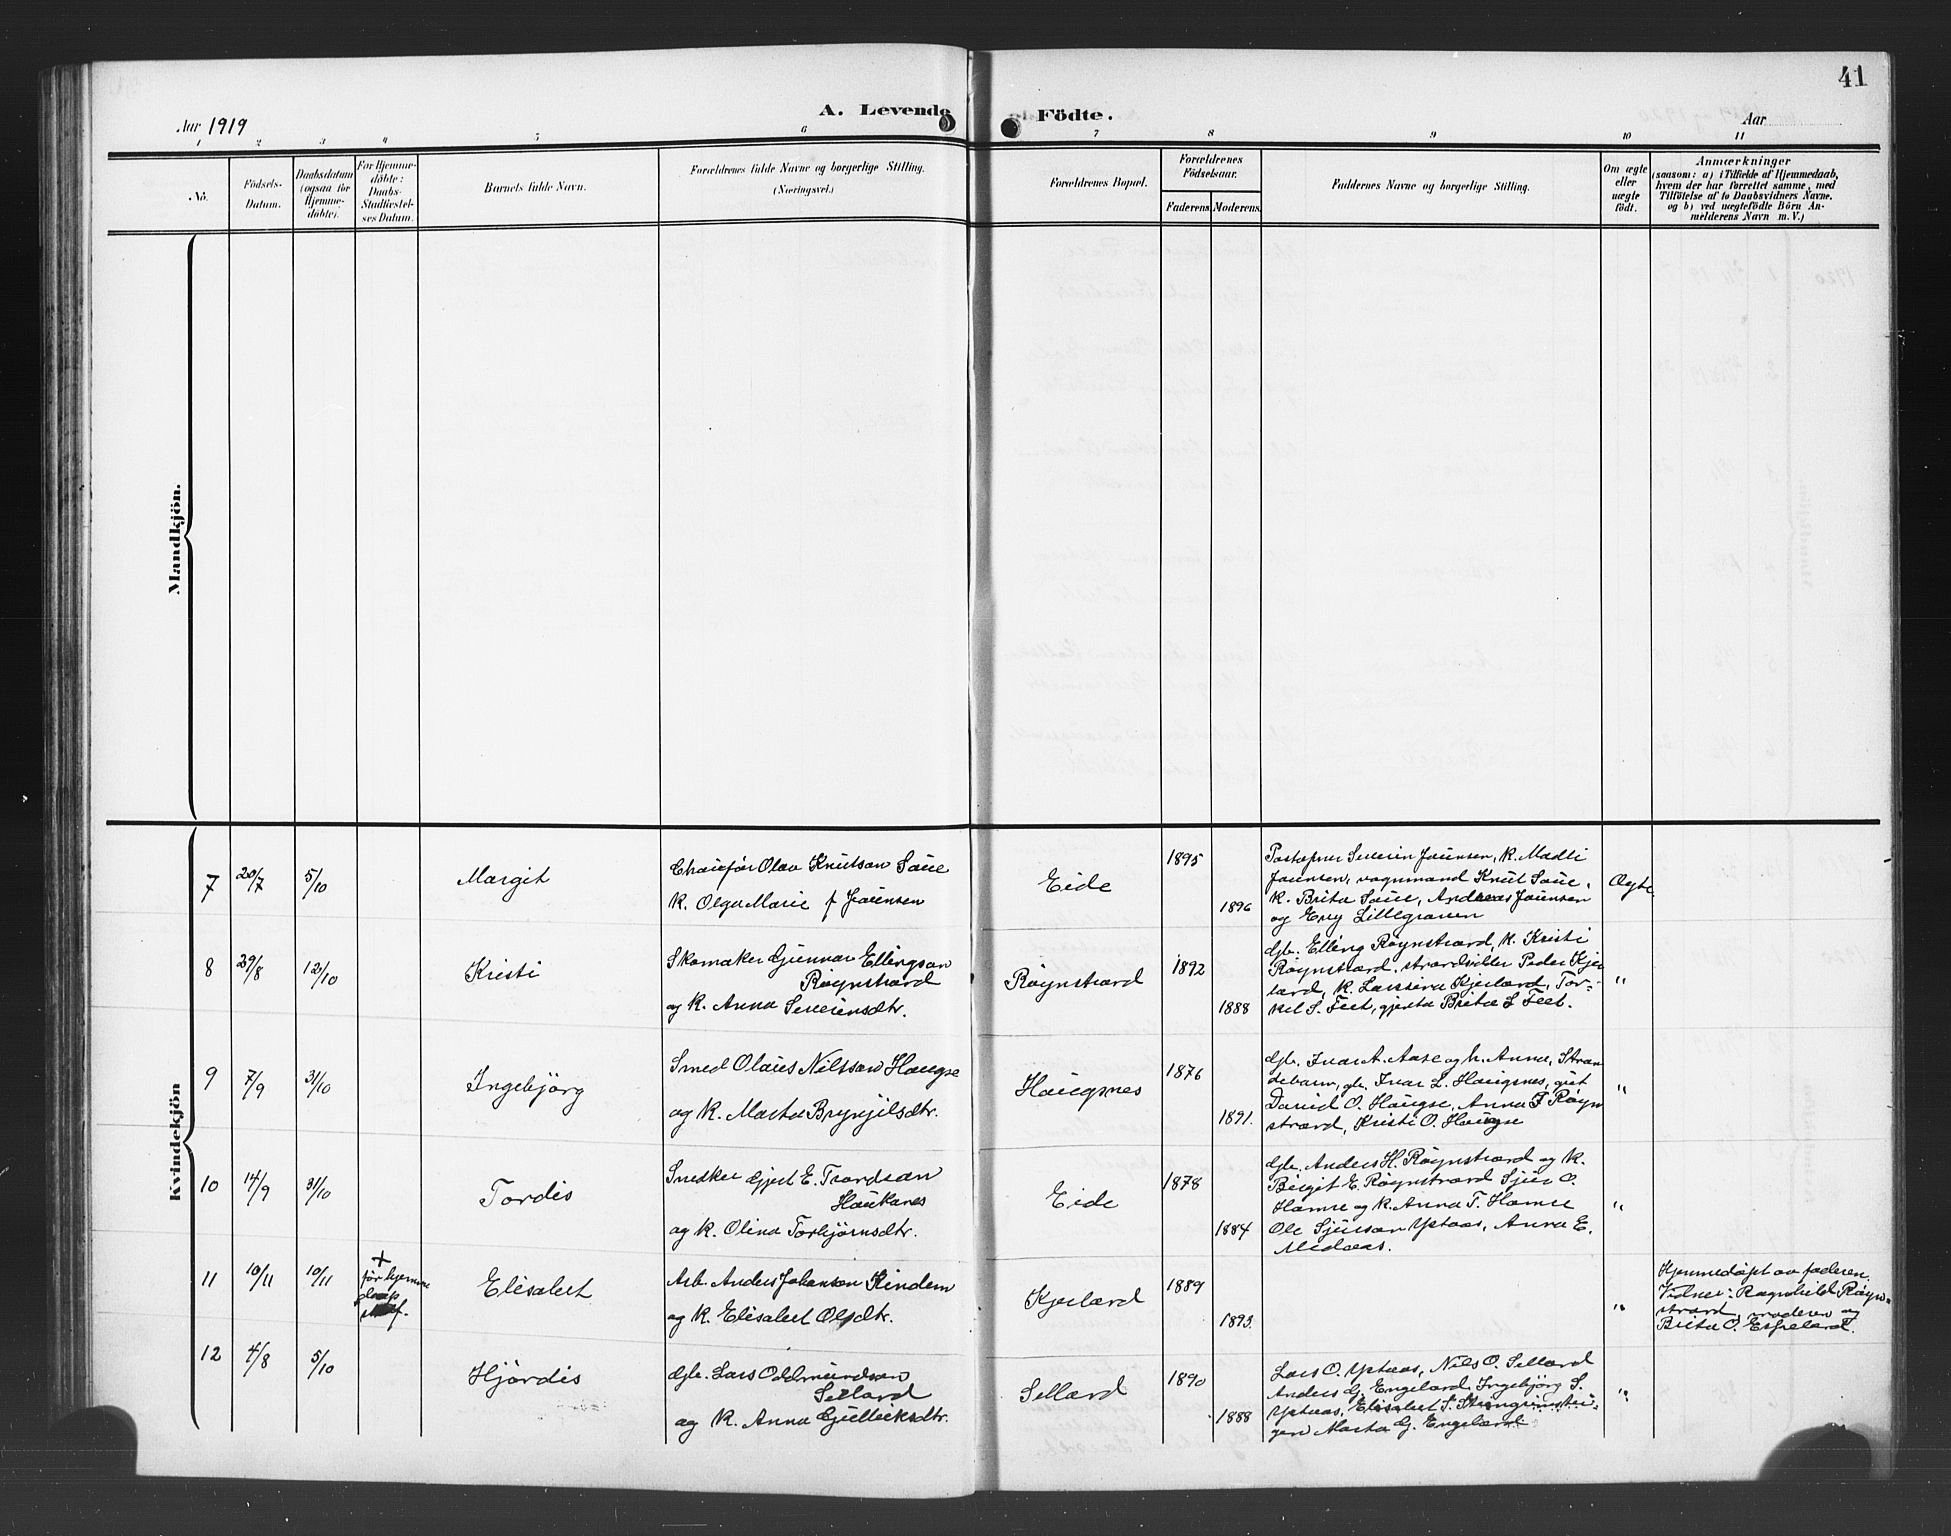 41
A. Levende Födte.
Aar 1919
Aar
1 2 3 4 5 6 7 8 9 10 11
No.
Födsels-
Datum.
Daabsdatum
(ogsaa for
Hjemme-
döbte).
For Hjemme-
döbte:
Daabs-
Stadfæstel-
ses Datum.
Barnets fulde Navn.
Forældrenes fulde Navne og borgerlige Stilling.
(Næringsvei.)
Forældrenes Bopæl.
Forældrenes
Födselsaar.
Faderens Moderens
Faddernes Navne og borgerlige Stilling.
Om ægte
eller
uægte
födt.
Anmærkninger
(saasom: a) i Tilfælde af Hjemmedaab,
hvem der har forrettet samme, med
Tilföielse af to Daabsvidners Navne.
og b) ved uægtefödte Börn An-
melderens Navn m. V.)
Mandkjön.
Kvindekjön
7 20/7 5/10 Margit
Chauffør Olav Knutson Saue
K. Olga Marie f Jaunsen
Eide 1895 1896
Postopner Severin Jaunsen, K. Madli
Jaunsen, vognmand Knut Saue,
K. Brita Saue, Andreas Jaunsen
og Eny Lillegraven
Ægte
8 29/8 12/10 Kristi
Skomaker Gunnar Ellingson
Røynstrand
og K. Anna Severinsdtr.
Røynstrand 1892 1888
Gb. Elling Røynstrand, K. Kristi
Røynstrand, strandsidder Peder Kjer
land, K. Larsina Kjerland, Tor-
kel S. Feet, gjenta Brita S Feet.
"
9 7/9 31/10 Ingebjörg
Smed Olaus Nilsson Haugse
og K. Marta Brynjulsdtr.
Haugsnes 1876 1891.
Gb. Ivar A. Aase og k. Anna, Stran
debarm, gb. Ivar L. Haugsnes, gut
David O. Haugse, Anna T Røyn
strand, Kristi O. Haugse
"
10 14/9 31/10 Tordis
Snedker Gjert E. Trondson
Haukanes
og K. Olina Torbjørnsdtr.
Eide 1878 1884
Gb. Anders H. Røynstrand og K.
Birgit E. Røynstrand Sjur O.
Hamre og K. Anna T. Hamre
Ole Sjurson Ystaas, Anna E.
Medaas.
"
11 10/11 10/11
+
før hjemme
daap
Elisabet
Arb. Anders Johanson Kindem
og K. Elisabet Olsdtr.
Kjerland 1889 1893.
"
Hjemmedøpt av faderen.
Vidner: Ragnhild Røyn-
strand, moderen og
Brita O. Espeland.
12 4/8 5/10 Hjördis
Gb. Lars Oddmundson
Selland
og K. Anna Gjulleiksdtr.
Selland 1890 1888
Lars O. Ystaas, Nils O. Selland
Anders G. Engeland, Ingebjörg S.
Ystaas, Elisabet S.
Marta G. Engeland
"